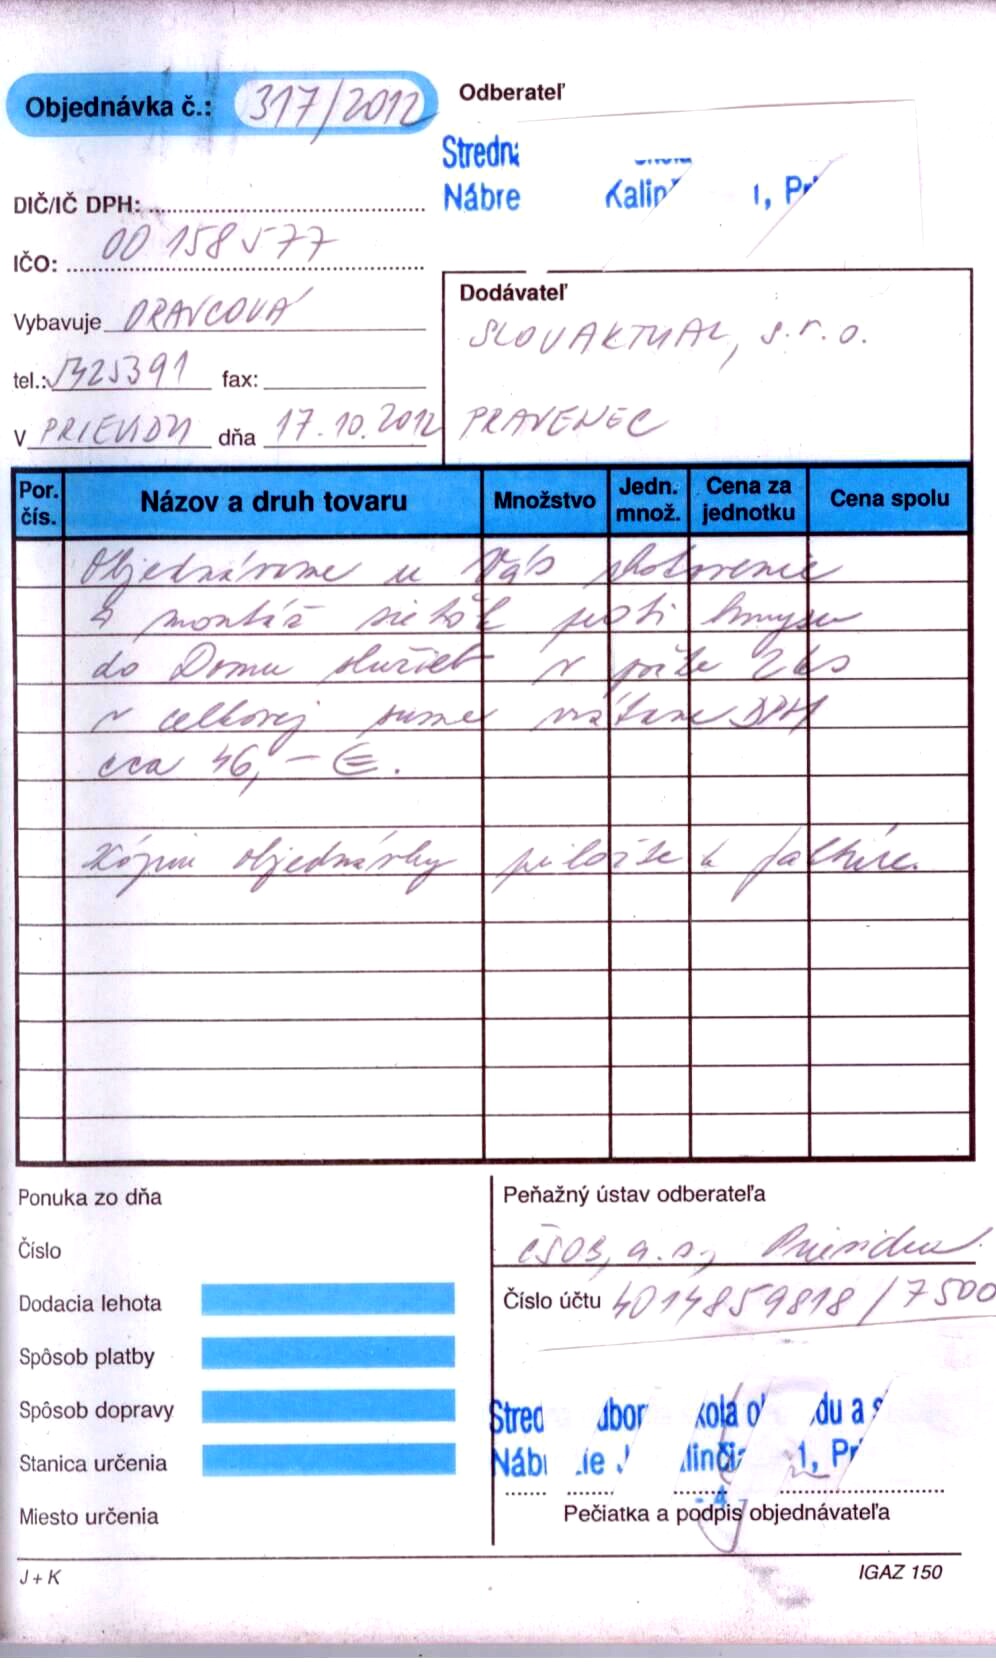 Objednávka č.: 317/2012
Odberateľ
Nábre
DIČ/IČ DPH:
IČO: 00 158577
Vybavuje ORAVCOVÁ
Dodávateľ
SLOVAKTUAL, s.r.o.
tel.: 5425391 fax:
V PRIEVIDZI dňa 17.10.2012
PRAVENEC
Por. čís. Názov a druh tovaru Množstvo Jedn. množ. Cena za jednotku Cena spolu
Objednávame u Vás zhotovenie
a montáž sietok proti hmyzu
do Domu služieb v počte 2 ks
v celkovej sume vrátane DPH
cca 46,- €.
Kópiu objednávky priložte k faktúre.
Ponuka zo dňa
Číslo
Dodacia lehota
Spôsob platby
Spôsob dopravy
Stanica určenia
Miesto určenia
Peňažný ústav odberateľa
ČSOB, a.s., Prievidza
Číslo účtu 4014859818/7500
- 4 -
Pečiatka a podpis objednávateľa
J + K
IGAZ 150